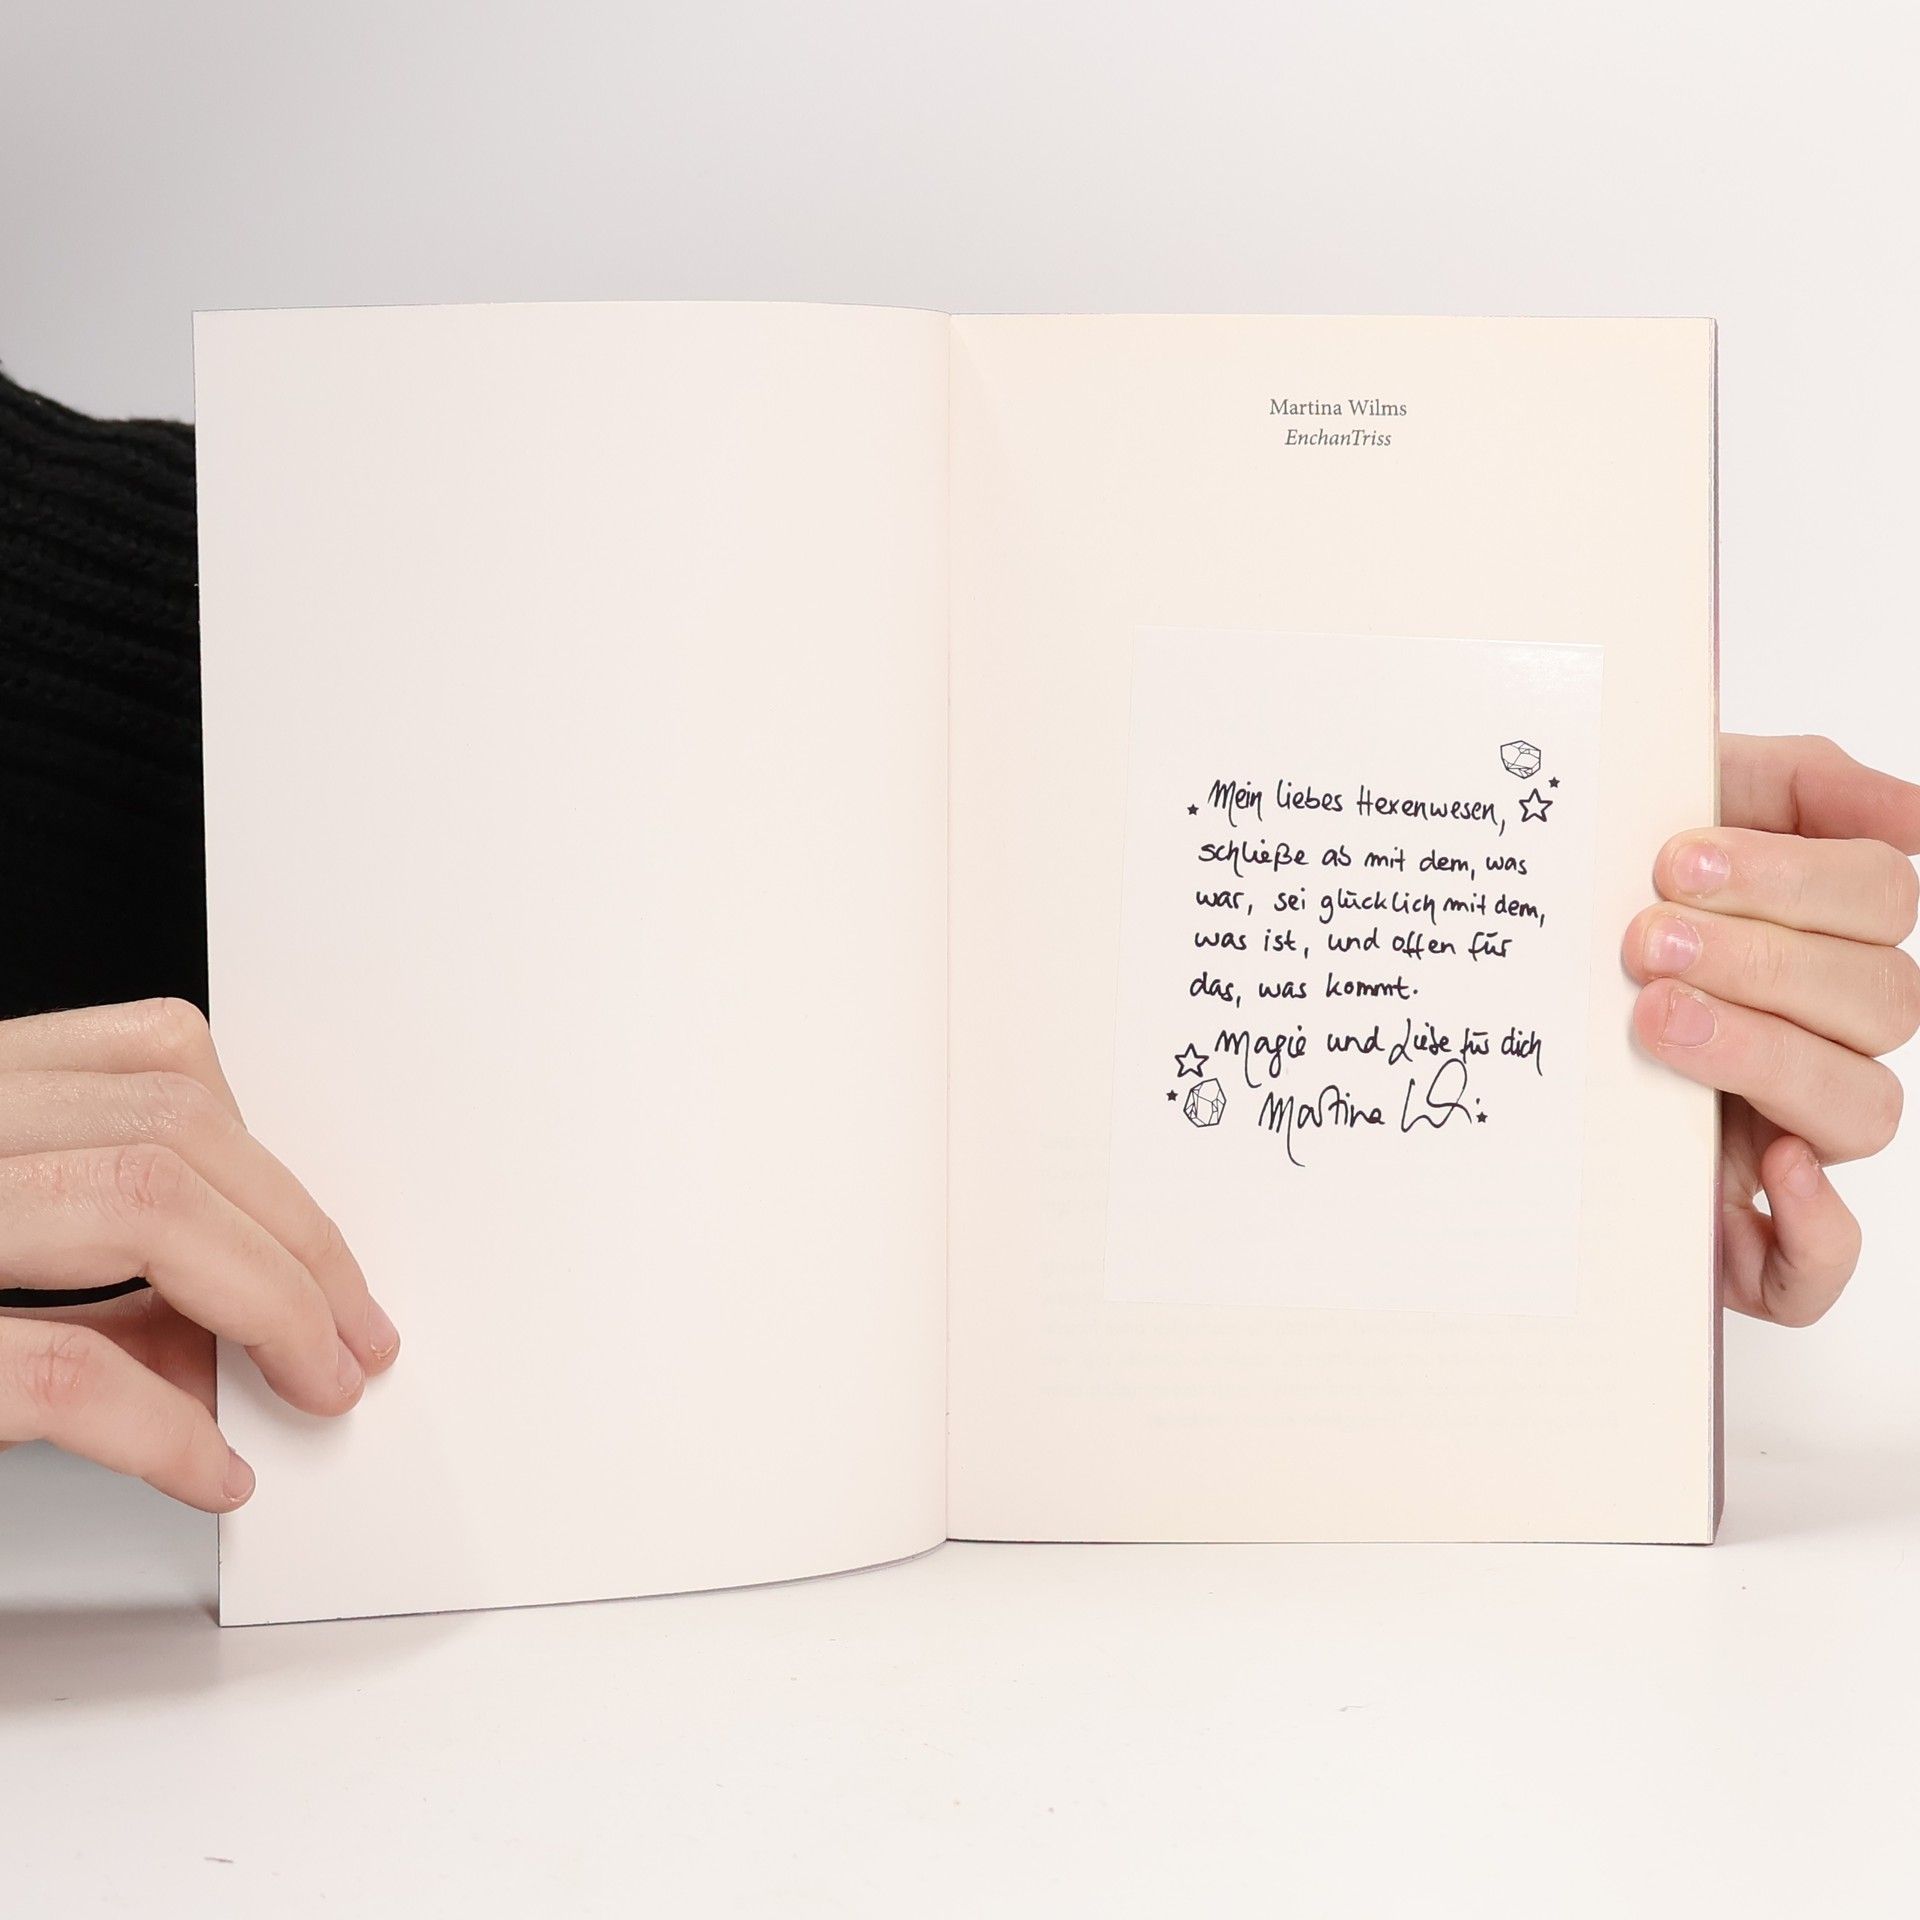 Martina Wilms
EnchanTriss
Mein liebes Hexenwesen,
schließe ab mit dem, was
war, sei glücklich mit dem,
was ist, und offen für
das, was kommt.
Magie und Liebe für dich
Martina